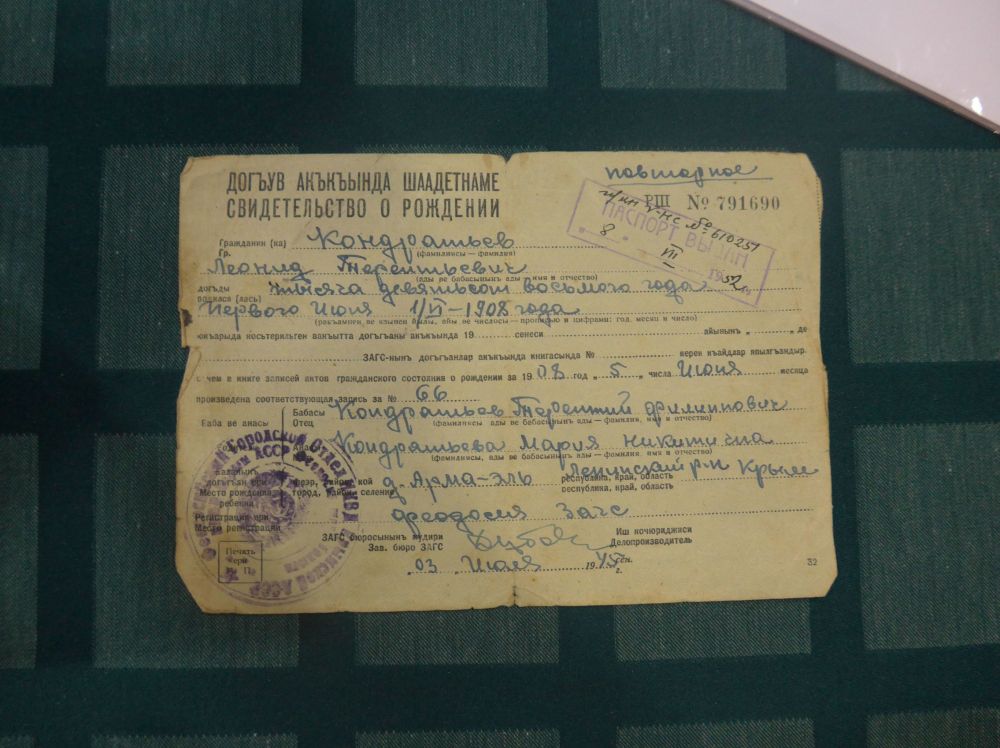 повторное
ДОГЪУВ АКЪКЪЫНДА ШААДЕТНАМЕ
СВИДЕТЕЛЬСТВО О РОЖДЕНИИ
РШ № 791690
№ 610251
ПАСПОРТ ВЫДАН
8 VII 1952 г.
Гражданин (ка) Кондратьев
Гр. (фамилиясы — фамилия)
Леонид Терентьевич
(ады ве бабасынынъ ады — имя и отчество)
догъды тысяча девятьсот восьмого года
родился (лась)
Первого Июня 1/VI-1908 года
(ракъамнен ве язынен йылы, айы ве числосы — прописью и цифрами: год, месяц и число)
юкъарыда косьтерильген вакъытта догъгъаны акъкъында 19 сенеси айынынъ " " де
ЗАГС-нынъ догъгъанлар акъкъында книгасында № керек къайдлар япылгъандыр.
о чем в книге записей актов гражданского состояния о рождении за 1908 год „ 5 „ числа Июня месяца
произведена соответствующая запись за № 66
Баба ве анасы Бабасы Отец Кондратьев Терентий Филиппович
(фамилиясы, ады ве бабасынынъ ады — фамилия, имя и отчество)
Кондратьева Мария Никитична
(фамилиясы, ады ве бабасынынъ ады — фамилия, имя и отчество)
Баланынъ догъгъан ери
Место рождения ребенка город, селение д. Арма-эль Ленинский р-н Крым
республика, край, область
республика, край, область
Регистрация ери
Место регистрации Феодосия Загс
ЗАГС бюросынынъ мудири
Зав. бюро ЗАГС
Иш кочюриджиси
Делопроизводитель
03 Июля 1945 сен. г.
Печать ери
М. П.
32